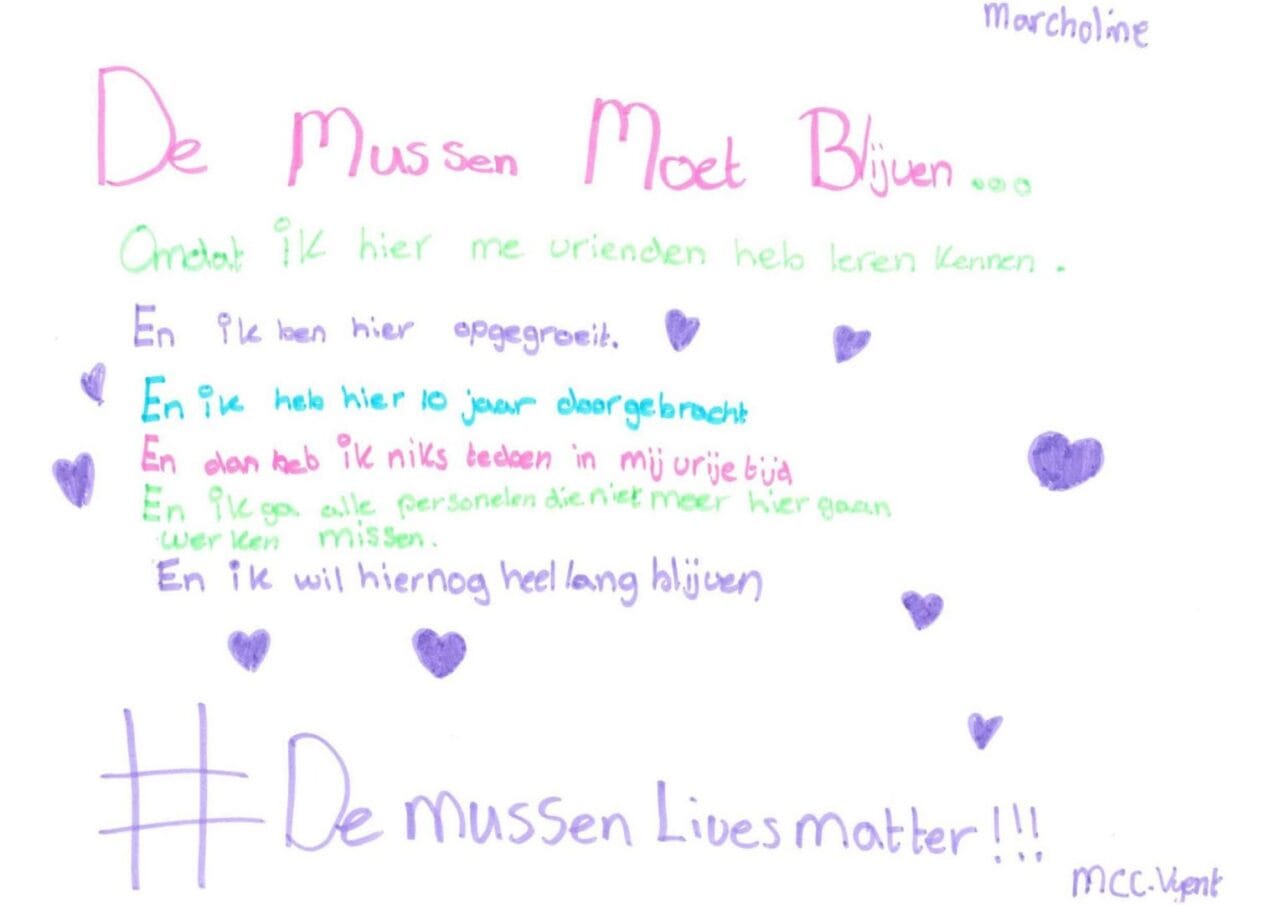 Marcholine
De Mussen Moet Blijven...
Omdat ik hier me vrienden heb leren kennen.
En ik ben hier opgegroeit.
En ik heb hier 10 jaar doorgebracht
En dan heb ik niks tedoen in mij vrije tijd
En ik ga alle personelen die niet meer hier gaan
werken missen.
En ik wil hier nog heel lang blijven
# De mussen Lives matter!!!
MCC.